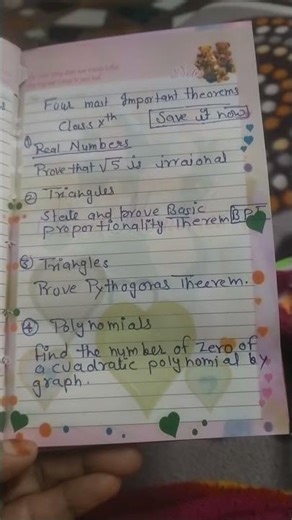 Four most Important theorems
Class Xth Save it now
① Real Numbers
Prove that √5 is irraional
② Triangles
State and prove Basic
proportionality Therem BPT
③ Triangles
Prove Pythogoras Theerem.
④ Polynomials
Find the number of zero of
a cuadratic polynomial by
graph.